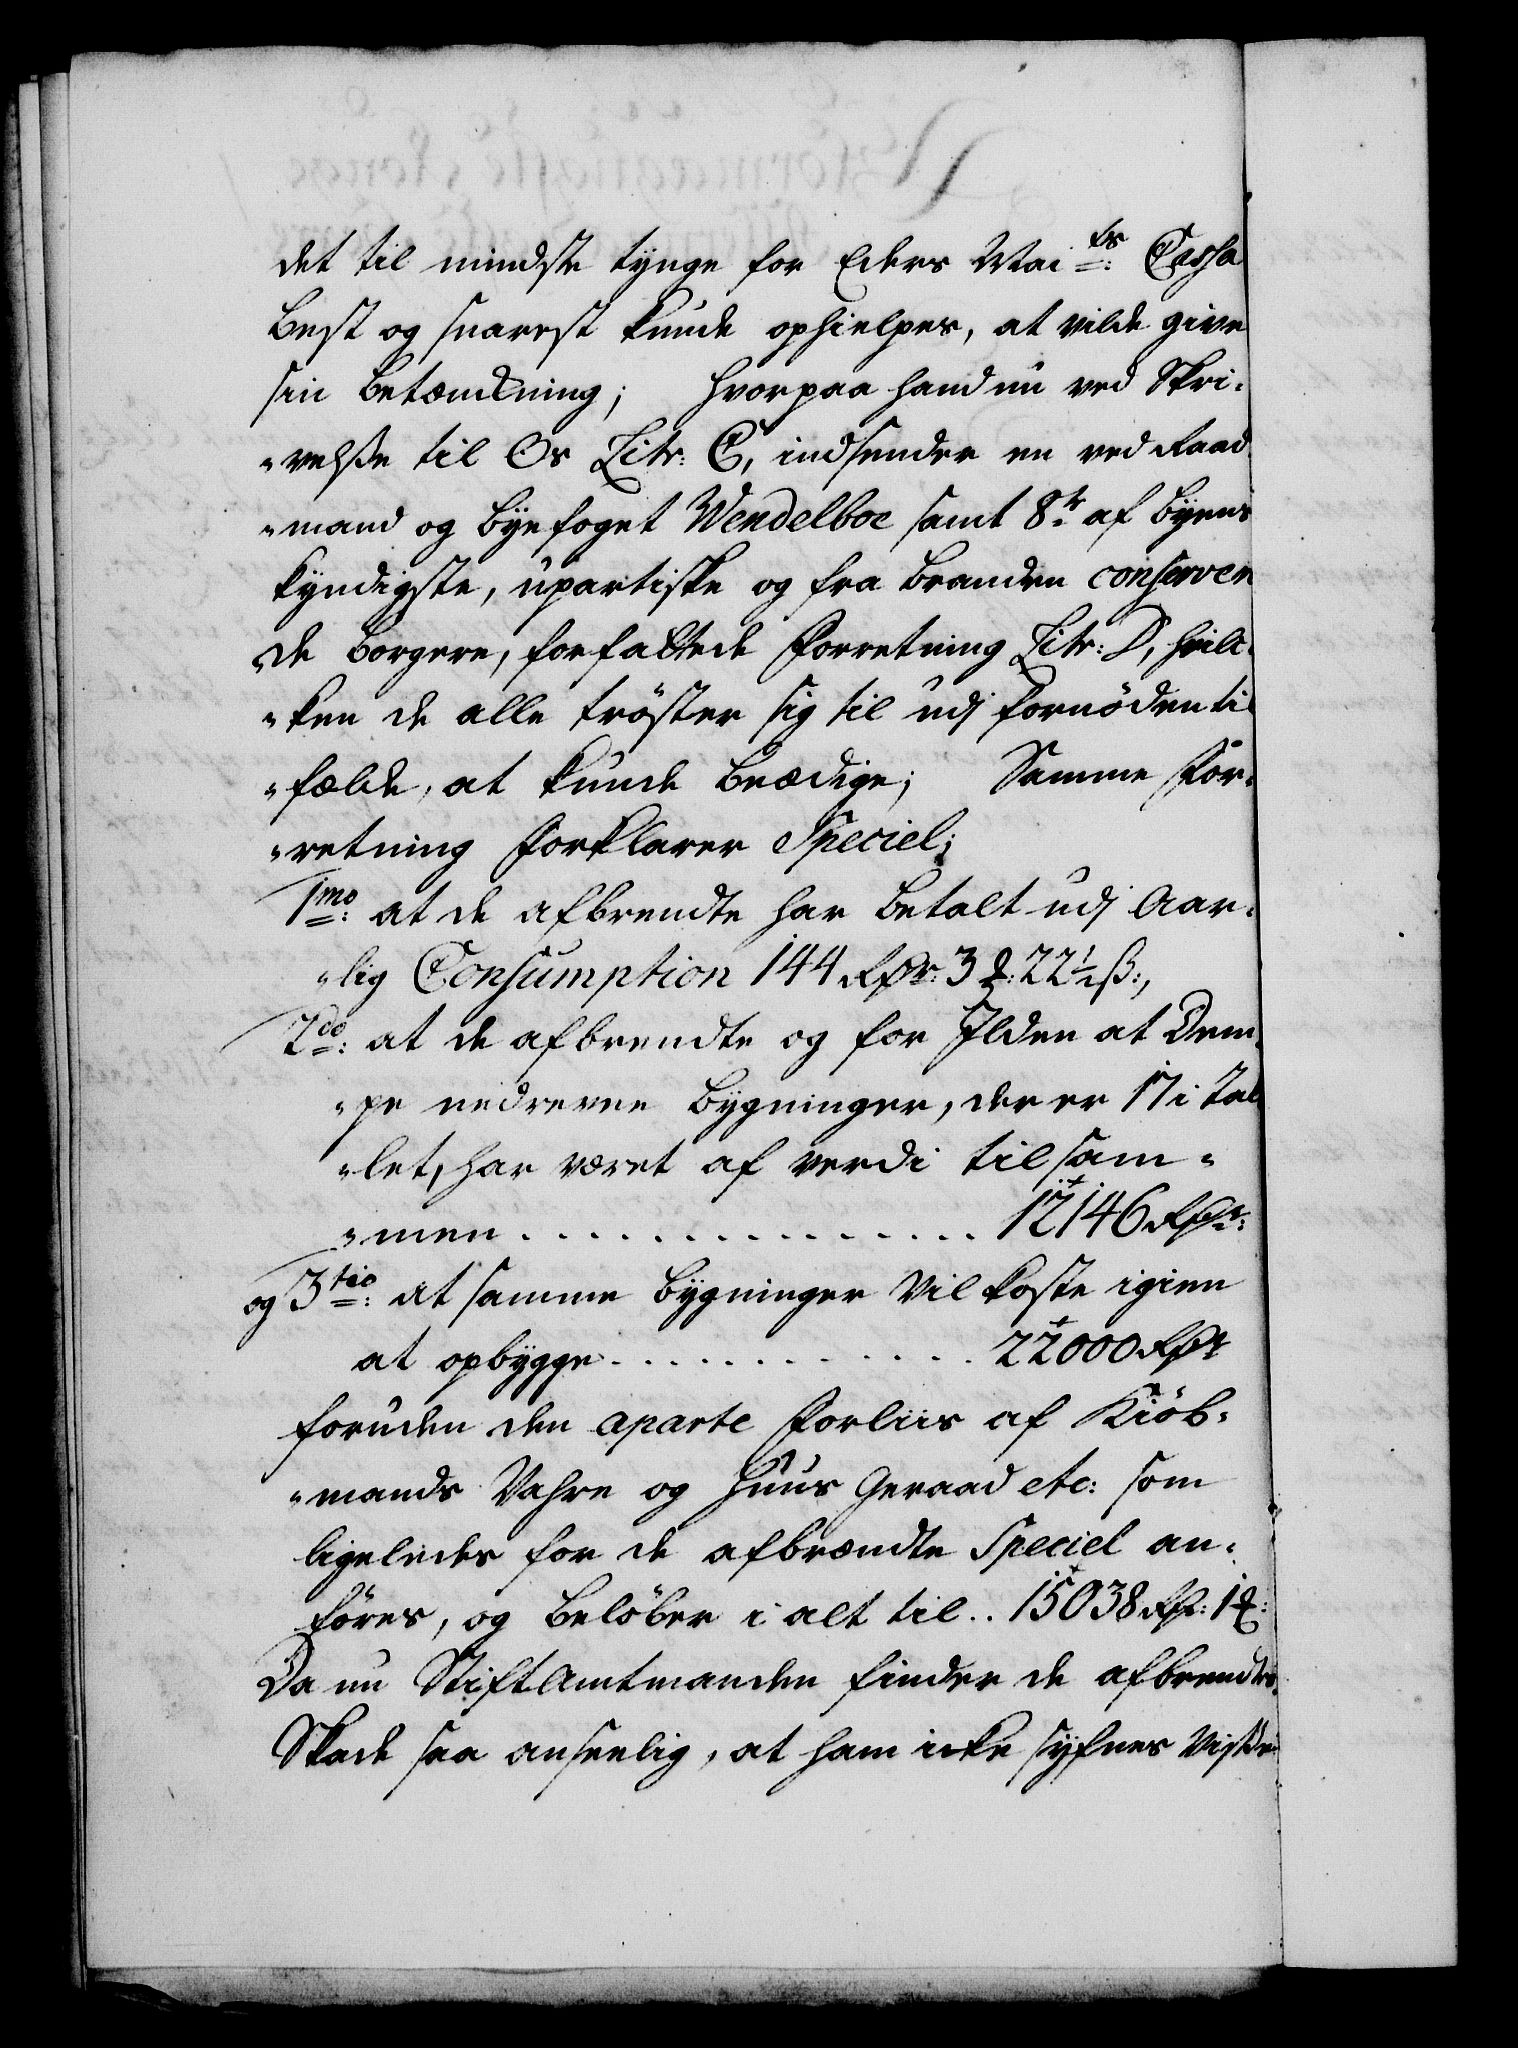 det til mindste tynge for Eders Mai ts: Cassa
best og snarest kunde ophielpes, at vilde give
sin betænkning; hvorpaa hand nu ved Skri-
"velße til Os Litr: C, indsender en ved Raad
"mand og byefoget Wendelboe samt 8te af byens
kyndigste, upartiske og fra branden conserver
"de borgere, forfattede forretning Litr: D, hvilc-
"ken de alle tröster sig til udj fornöden til
"fælde, at kunde beædige; Samme for-
"retning forklarer Speciel;
1mo: at de afbrendte har betalt udj Aar-
"lig Consumption 144 Rdr: 3 ℔: 22½ ß:,
2do: at de afbrendte og for Ilden at dem-
"pe nedrevne bygninger, der er 17 i Tal
"let, har været af verdi tilsam-
"men . . . . . . . . . . . . . . . 12146 Rdr:
og 3tio: at samme bygninger vil koste igien
at opbygge . . . . . . . . . . . . 22000 Rdr
foruden den aparte forliis af Kiöb-
"mands Vahre og huus geraad etc: som
ligeledes for de afbrændte Speciel an-
föres, og belöber i alt til . . 15038 Rdr: 1 ℔:
Da nu Stiftamtmanden finder de afbrendtes
Skade saa anseelig, at ham icke syfnes